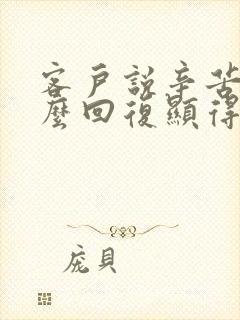 客戶說辛苦
麼回復顯得
龐貝